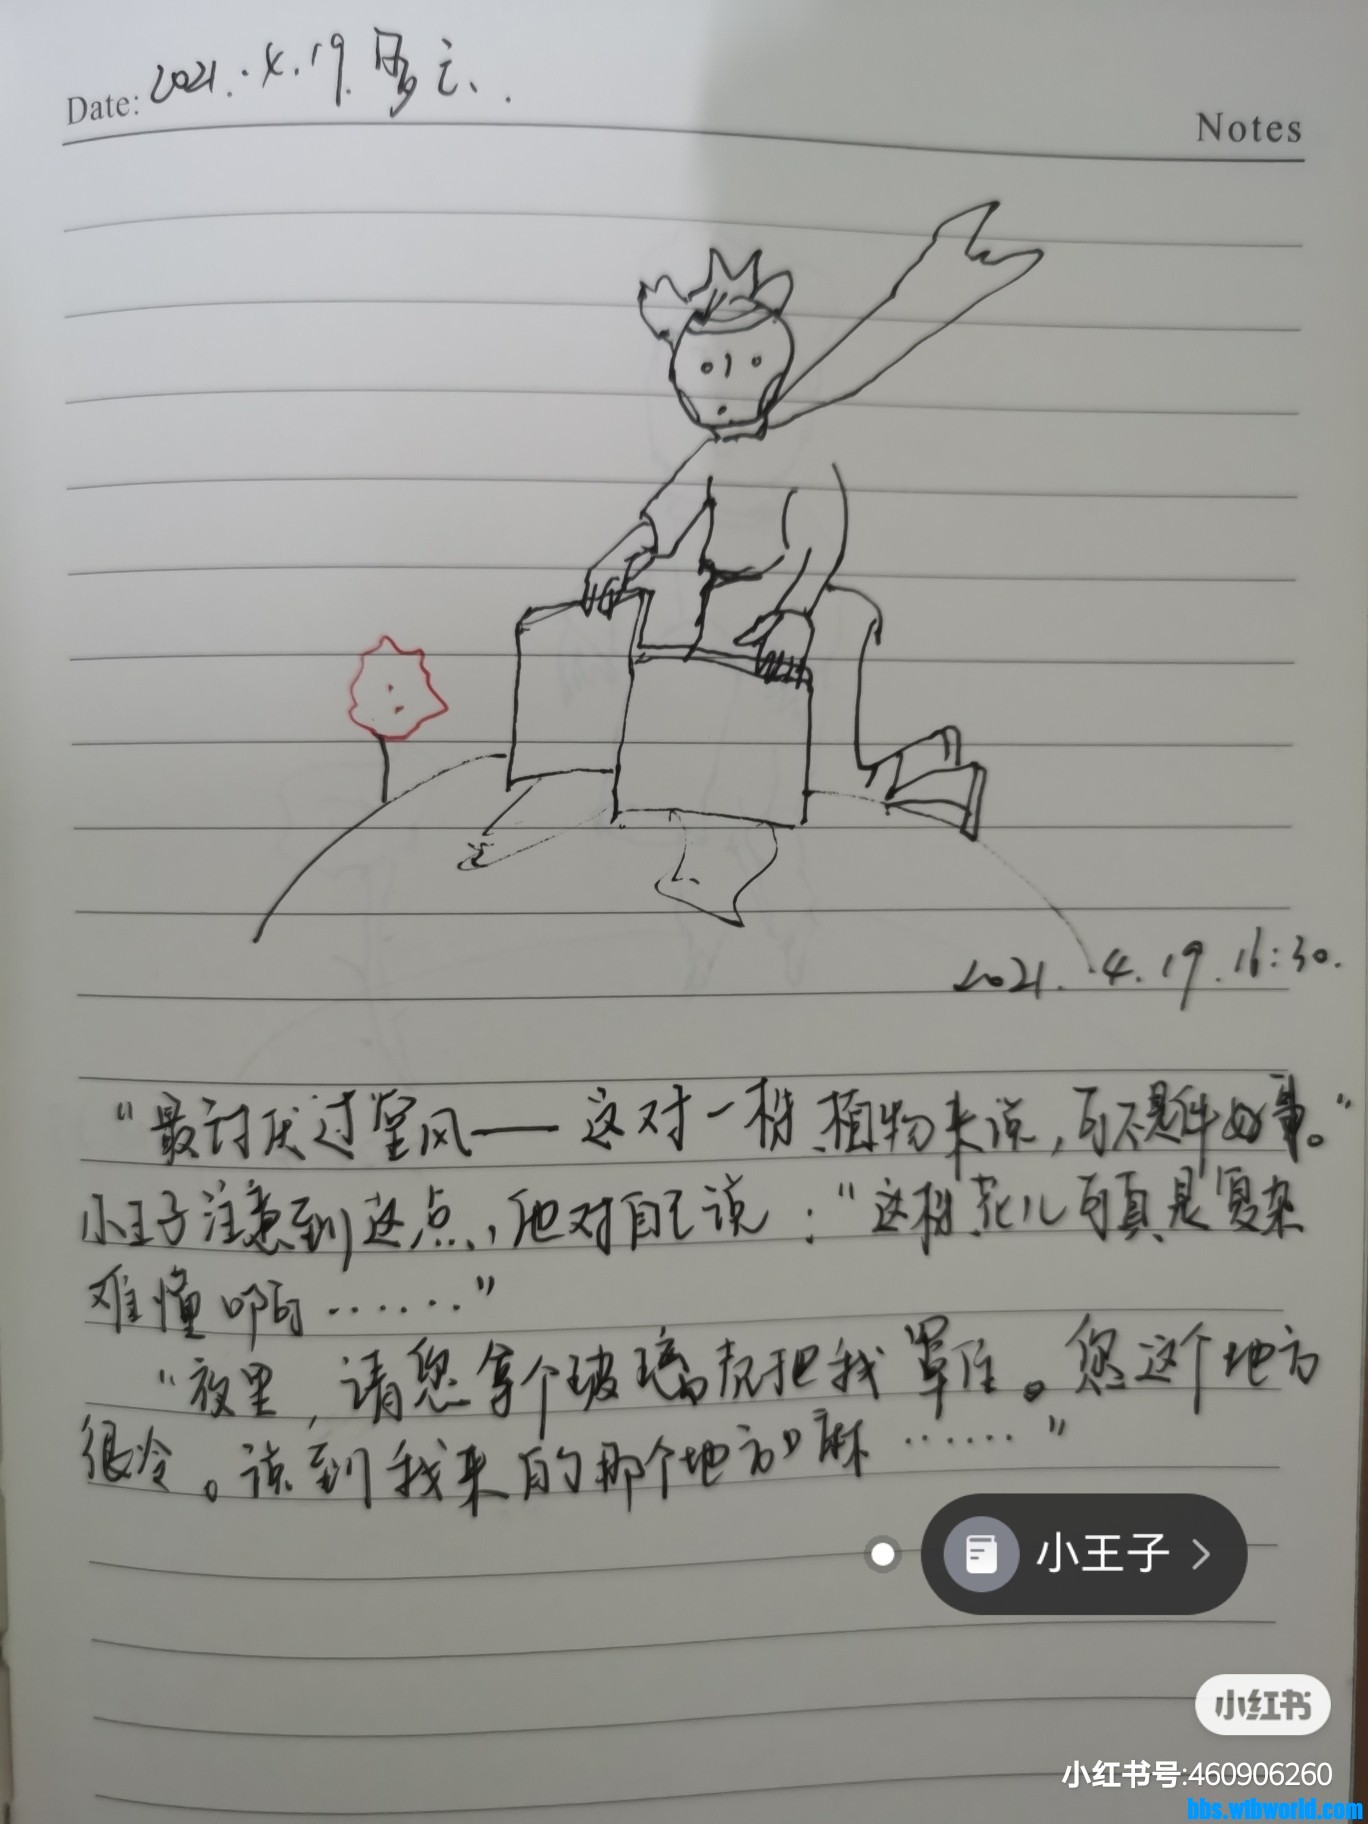 Date: 2021.4.19. 多云.
Notes
2021.4.19.16:30.
“最讨厌过堂风——这对一株植物来说,可不是件好事。”
小王子注意到这点,他对自己说:“这株花儿可真是复杂
难懂啊……”
“夜里,请您拿个玻璃罩把我罩住。您这个地方
很冷。该到我来的那个地方嘛……”
小王子
小红书
小红书号:460906260
bbs.wtbworld.com